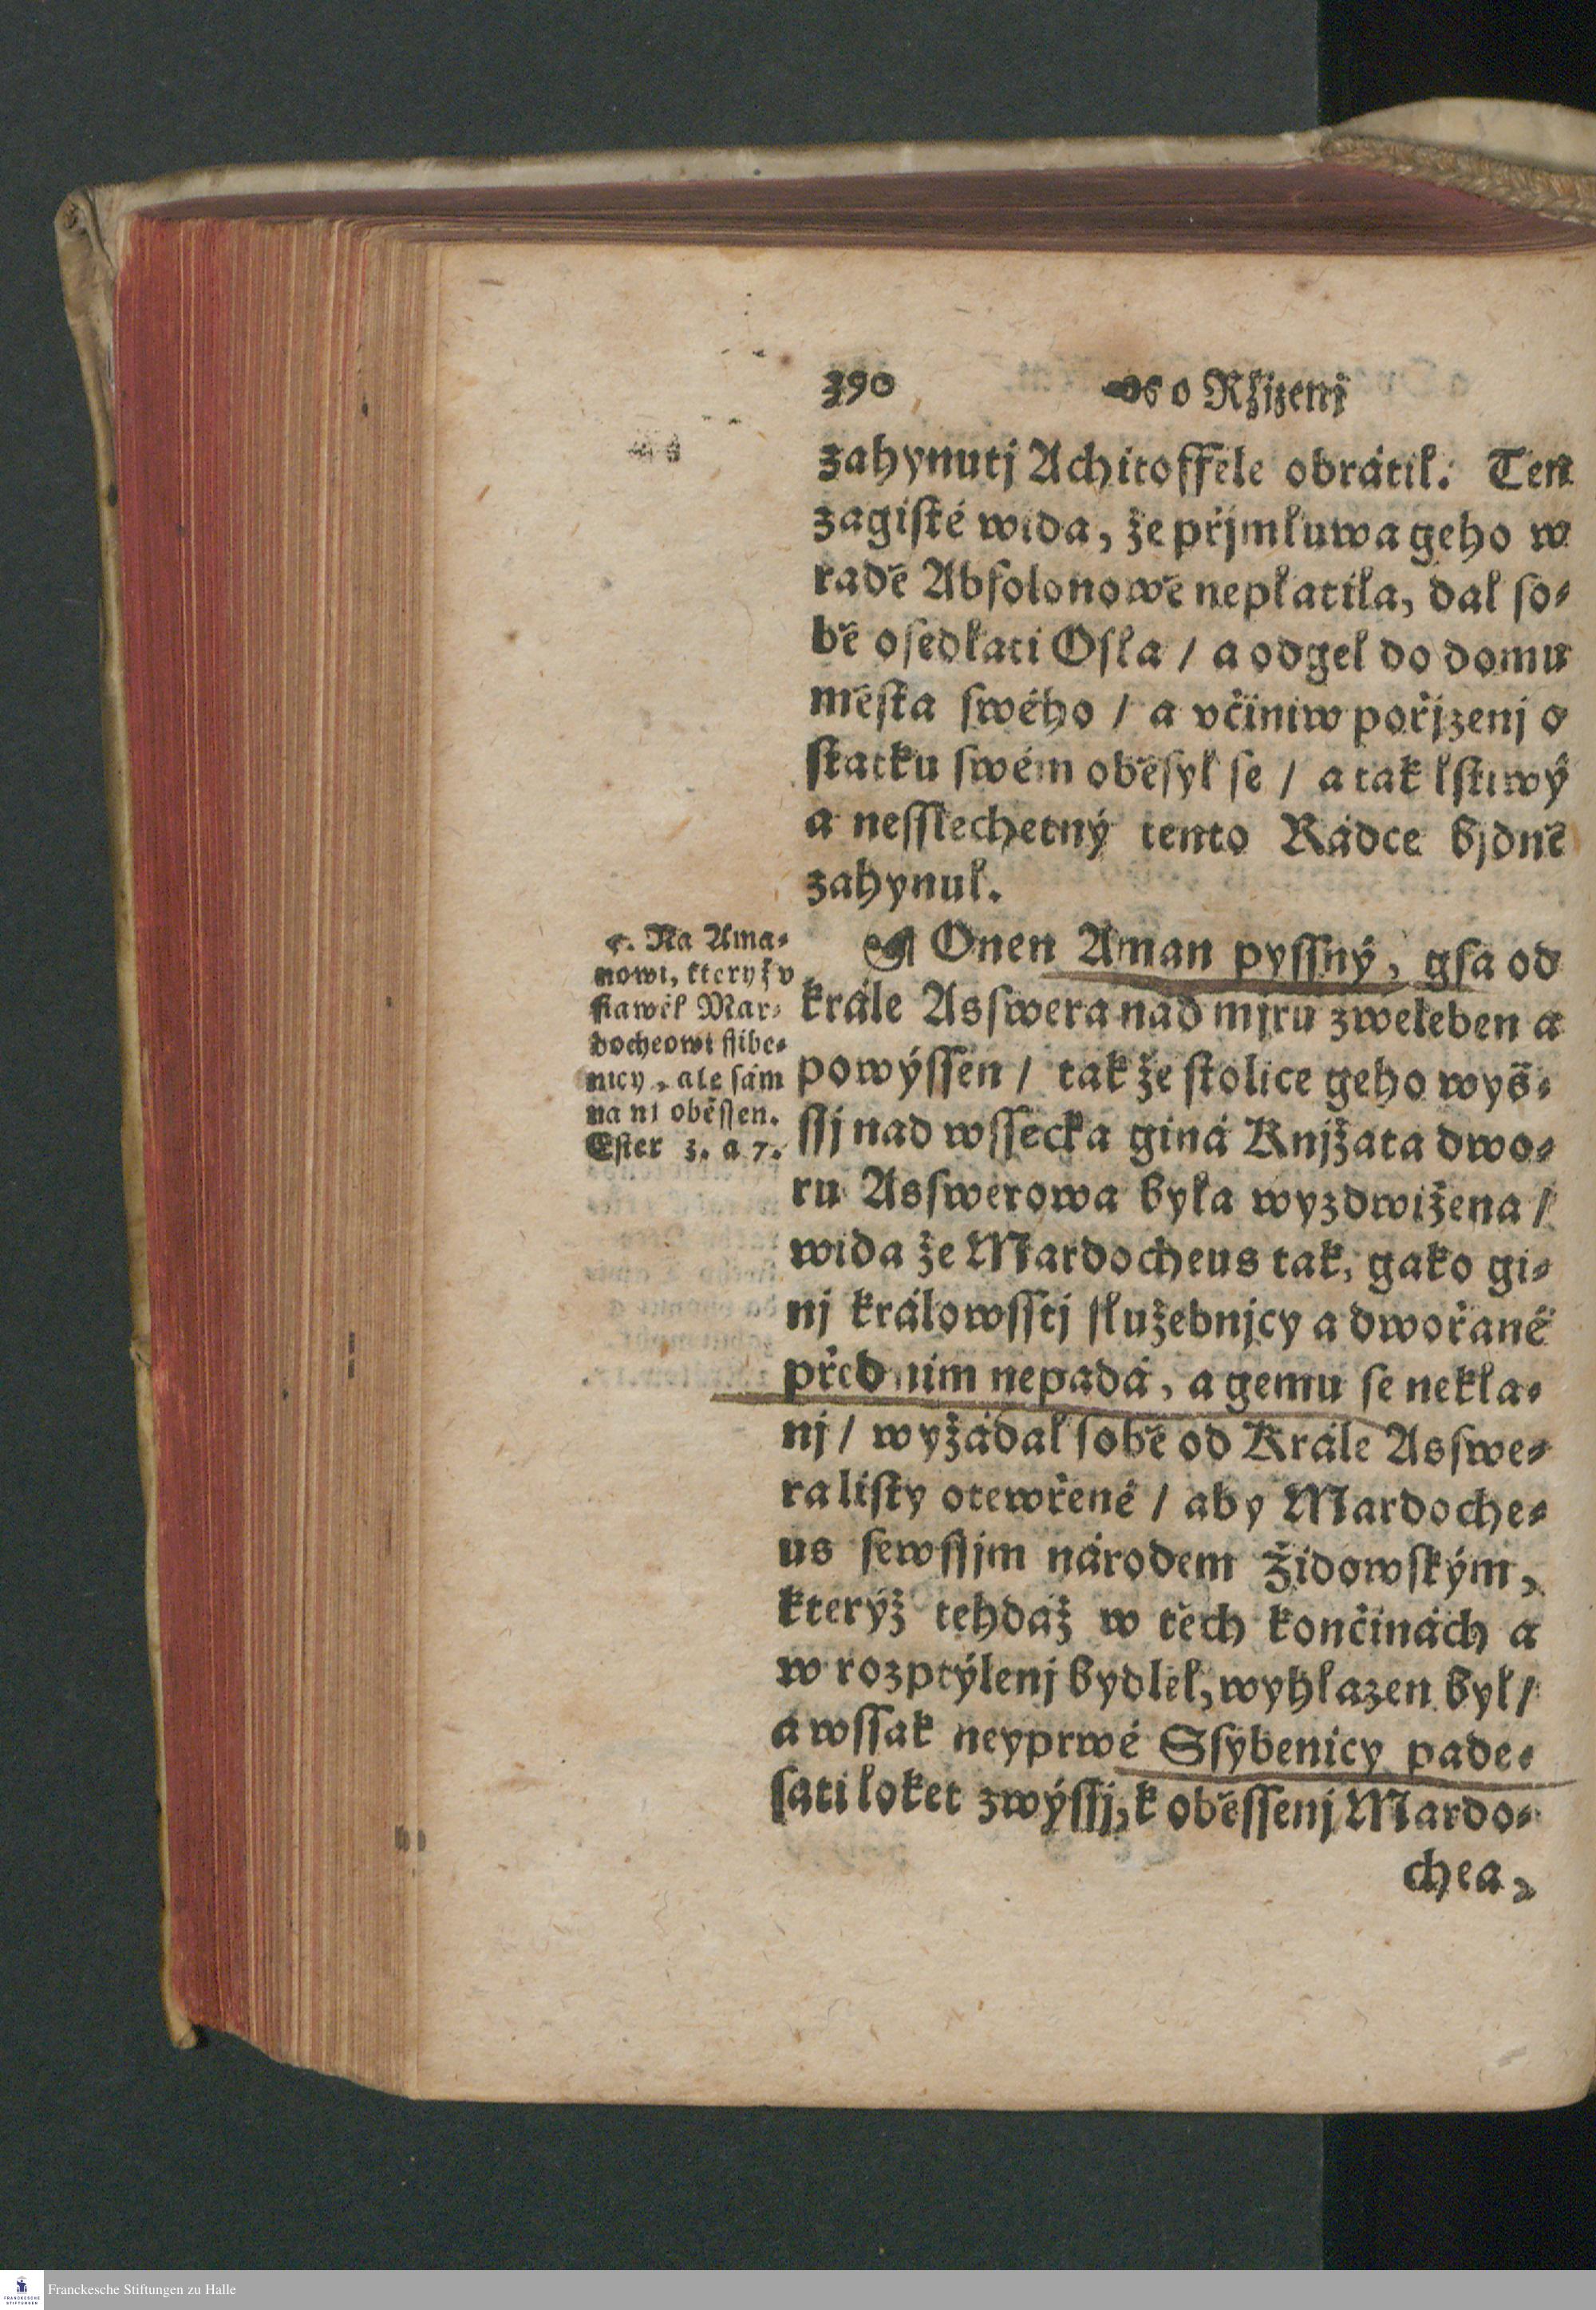 390 o Ržizenj
zahynutj Achitoffele obrátil. Ten
zagisté wida, že přjmluwa geho w
radě Absolonowě neplatila, dal so-
bě osedlati Osla / a odgel do domu
města swého / a včiniw pořjzenj o
statku swém oběsyl se / a tak lstiwý
a nesslechetný tento Rádce bjdně
zahynul.
5. Na Ama-
nowi, kteryž v
stawěl Mar-
docheowi stibe-
nicy, ale sám
na ni oběssen.
Ester 3. a 7.
Onen Aman pyssný, gsa od
krále Asswera nad mjru zweleben a
powýssen / tak že stolice geho wyš-
ssj nad wssecka giná Knjžata dwo-
ru Asswerowa byla wyzdwižena /
wida že Mardocheus tak, gako gi-
nj králowsstj služebnjcy a dwořané
před nim nepadá, a gemu se nekla-
nj / wyžádal sobě od Krále Asswe-
ra listy otewřené / aby Mardoche-
us sewssjm národem Židowským,
kterýž tehdáž w těch končinách a
w rozptýlenj bydlel, wyhlazen byl /
a wssak neyprwé Ssybenicy pade-
sati loket zwýssj, k oběssenj Mardo-
chea,
Franckesche Stiftungen zu Halle